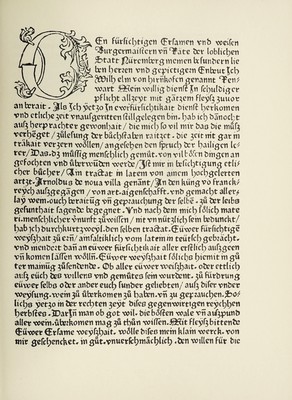 DEn fürsichtigen Ersamen vnd weisen
Burgermaistern vñ Rate der loblichen
Statt Nüremberg meinen besundern lie
ben herren vnd gepietigern Embeut Ich
Wilhelm von hirnkofen genannt Renn
wart Mein willig dienst In schuldiger
pflicht allzeyt mit gãtzem fleysz zuuor
an berait. Als Ich yetzo In ewrfürsichtikait dienst herkomen
vnd etliche zeit vnausgeritten stillgelegen bin. hab ich dãnocht
ausz her prachter gewonhait / die mich so vil mir das die müsz
verhēget / zülesung der büchstaben raitzet. die zeit mit gar in
träkait verzern wöllen / angesehen den spruch der hailigen le
rer / Das dz müssig menschlich gemüt. von vil bösen dingen an
gefochten vnd überwunden werde / Ist mir in besichtigung etli
cher bücher / Ain tractat in latein von ainem hochgelerten
artzt. Arnoldus de noua villa genãnt / zu den küng vō franck
reych auszgegãgen / von art. aigenschafft. vnd gemächt aller
lay wein. ouch berait͛g vñ geprauchung der selbē. zů der leibs
gesunthait fasznde begegnet. Vnd nach dem mich solich mate
ri. menschlicher vnurft zůwissen / nit vn nützlich sein beduncket /
hab ich durchkurtzweyl. den selben tractat. Eüwer fürsichtige
weyszhait zů ern / auffaltiklich vom latein in teutsch gebracht.
vnd mein bet dan an eüwer fürsichtikait aller erstlich auszgeen
vñ komen lassen wölln. Eüwer weyszhait sölichs hiemit in gů
ter mainüg züsendende. Ob aller eüwer weyszhait. oder ettlich
ausz euch des willens vnd gemütes sein wurden. zů fürdrung
eüwer selbs oder ander euch sunder geliebten / ausz diser vnder
weysung. wein zů überkomen zů haben. vñ zů geprauchen. So
lichs yetzo in der rechten zeyt dises gegenwirtigen reychhen
herbstes. Darin man ob got wil. die bösten wale vñ auszpund
aller wein. überkomen mag zů thůn wissen. Mit fleysz bittende
Eüwer Ersame weyszhait. wölle disen mein klain werck. von
mir geschencket. in gůt. vnuerschmächlich. den willen für die